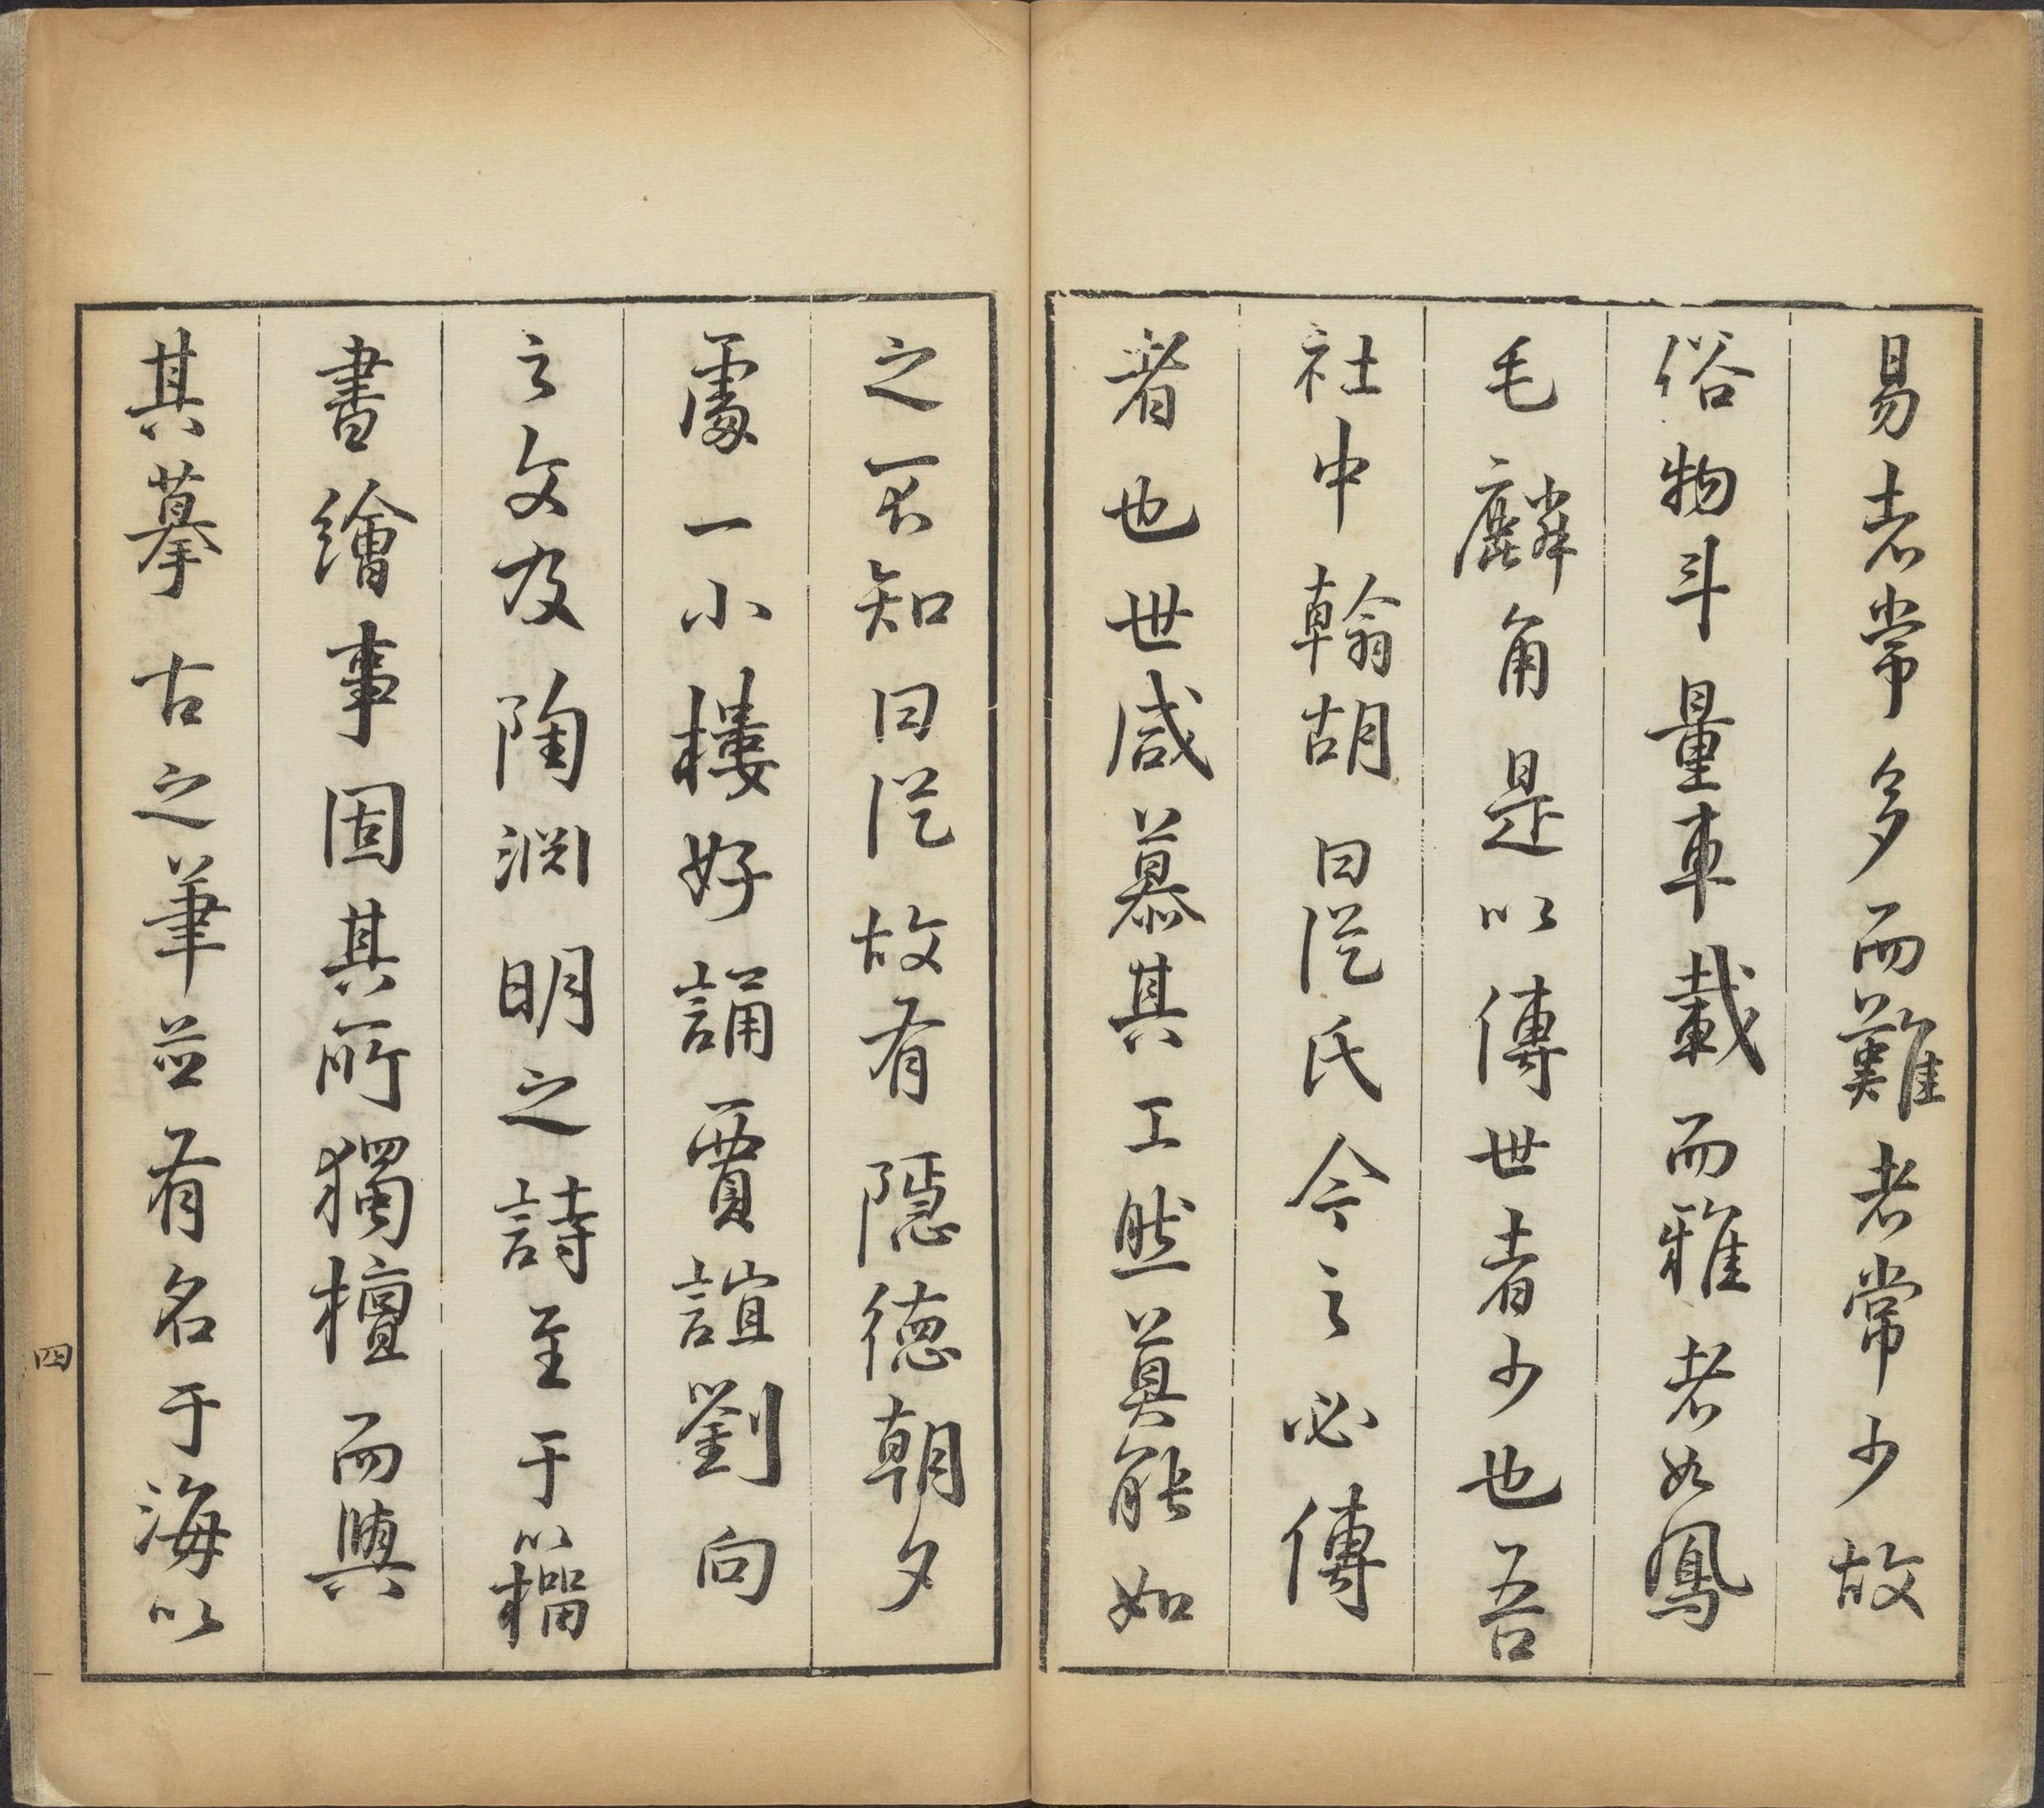 易者常多而難者常少故
俗物斗量車載而雅者如鳳
毛麟角是以傳世者少也吾
社中翰胡曰從氏今之必傳
者也世咸慕其工然莫能如
之不知曰從故有隱德朝夕
處一小樓好誦賈誼劉向
之文及陶淵明之詩至于籀
書繪事固其所獨檀而與
其摹古之筆並有名于海以
四